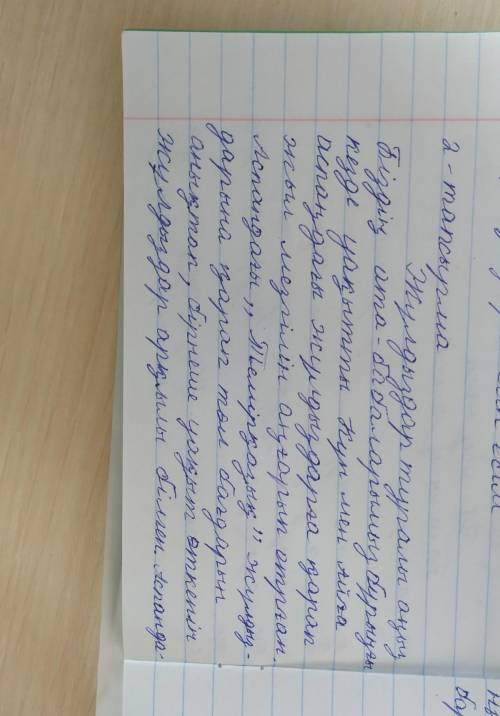 2-тапсырма
Жұлдыздар туралы аңыз
Біздің ата-бабаларымыз бұрынғы
кезде уақытты Күн мен Айға
аспандағы жұлдыздарға қарап
жыл мезгілін аңғарып отырған.
Аспандағы „Темірқазық" жұлдыз-
дарына қарап жол бағдарын
анықтап, бірнеше уақыт өткенін
жұлдыздар арқылы білген. Аспанда-